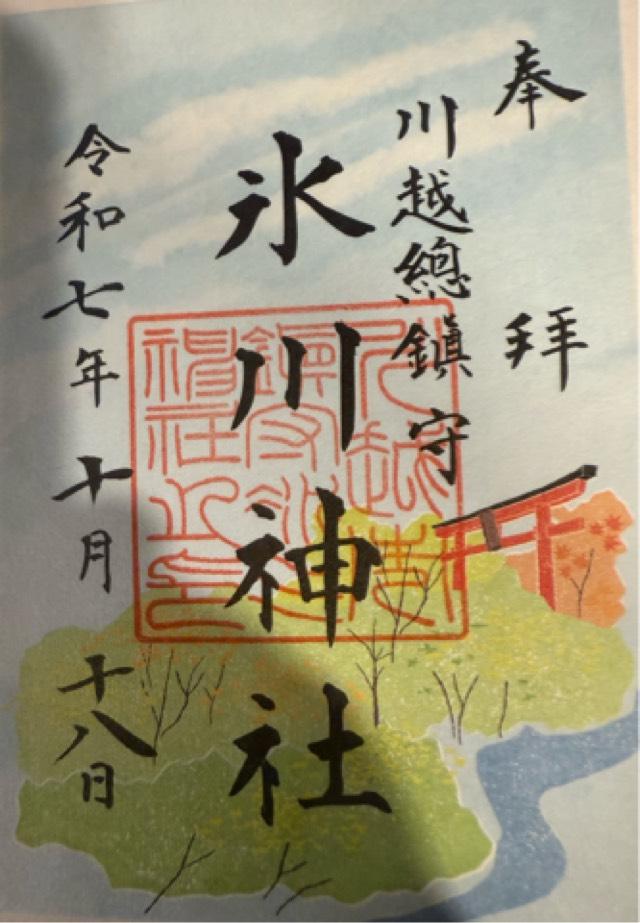 奉拝
川越總鎮守
氷川神社
令和七年十月十八日